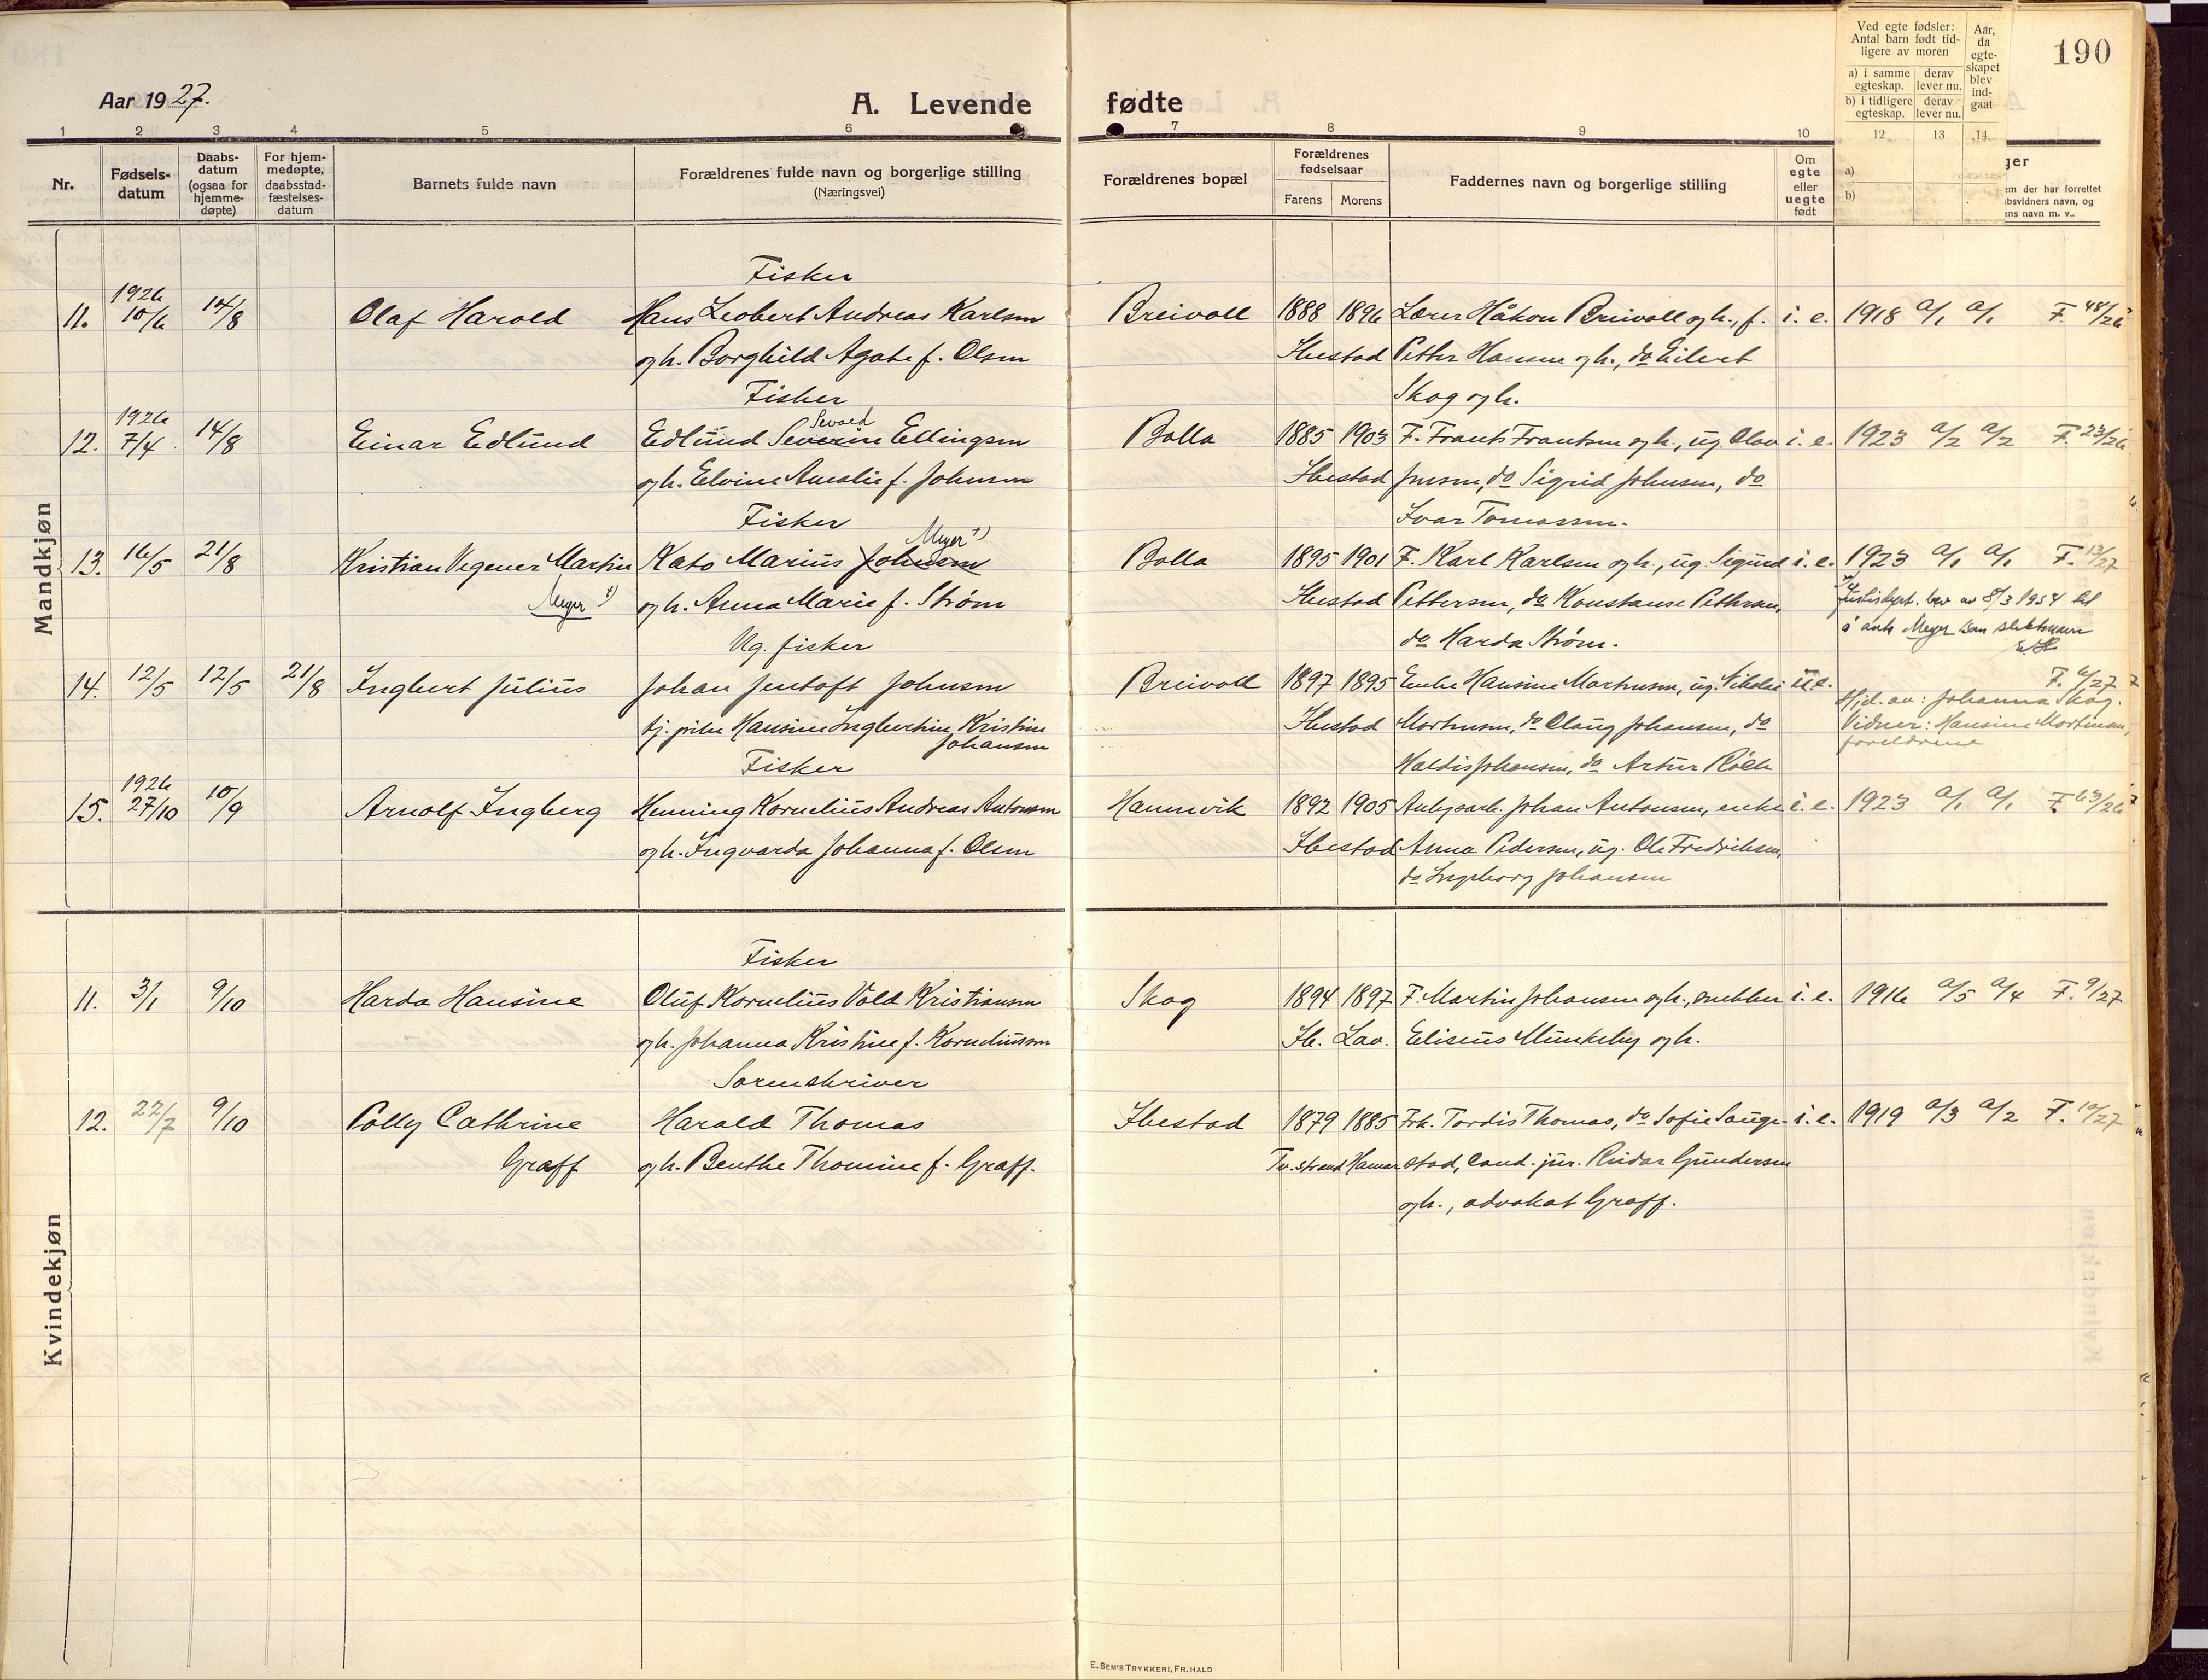 190
Aar 1927.
A. Levende fødte
Ved egte fødsler:
Antal barn født tid-
ligere av moren
a) i samme egteskap.
derav lever nu.
b) i tidligere egteskap.
derav lever nu.
Aar, da egte-skapet blev ind-gaat
1 2 3 4 5 6 7 8 9 10 12 13 14
Nr.
Fødsels-datum
Daabs-datum (ogsaa for hjemme-døpte)
For hjem-medøpte, daabsstad-fæstelses-datum
Barnets fulde navn
Forældrenes fulde navn og borgerlige stilling
(Næringsvei)
Forældrenes bopæl
Forældrenes fødselsaar
Farens Morens
Faddernes navn og borgerlige stilling
Om egte eller uegte født
a)
b)
ger
em der har forrettet
bsvidners navn, og
ens navn m. v..
Mandkjøn
Fisker
11. 1926 10/6 14/8 Olaf Harold Hans Leobert Andreas Karlsen Breivoll 1888 1896 Lærer Håkon Breivoll og h., f. i. e. 1918 a/1 a/1 F. 48/26
og h. Borghild Agate f. Olsen Ibestad Petter Hansen og h., do Eilert
Fisker Skog og h.
12. 1926 7/4 14/8 Einar Edlund Edlund Severin Sevald Ellingsen Bolla 1885 1903 F. Frants Frantsen og h., ug. Olav i. e. 1923 a/2 a/2 F. 23/26
og h. Elvine Amalie f. Johnsen Ibestad Jensen, do Sigrid Johnsen, do
Fisker Ivar Tomassen.
13. 16/5 21/8 Kristian Vegener Martin Kato Marius Johnsen Meyer +) Bolla 1895 1901 F. Karl Karlsen og h., ug. Sigurd i. e. 1923 a/1 a/1 F. 13/27
Meyer +) og h. Anna Marie f. Strøm Ibestad Pettersen, do Konstanse Pettersen,
do Harda Strøm.
Justisdept. bev av 8/3 1954 til
å anta Meyer som slektsnavn
Ug. fisker
14. 12/5 12/5 21/8 Ingbert Julius Johan Jentoft Johnsen Breivoll 1897 1895 Enke Hansine Mortensen, ug. Nikolai u. e. F. 6/27
tj. pike Hansine Ingbertine Kristine Johansen Ibestad Mortensen, do Olaug Johansen, do
Haldis Johansen, do Artur
Hjd. av: Johanna Skog.
Vidner: Hansine Mortensen,
foreldrene
Fisker
15. 1926 27/10 10/9 Arnolf Ingberg Henning Kornelius Andreas Antonsen Hamnvik 1892 1905 Anlegsarb. Johan Antonsen, enke i. e. 1923 a/1 a/1 F. 63/26
og h. Ingvarda Johanna f. Olsen Ibestad Anna Pedersen, ug. Ole Fredriksen,
do Ingeborg Johansen
Kvindekjøn
Fisker
11. 3/1 9/10 Harda Hansine Oluf Kornelius Vold Kristiansen Skog 1894 1897 F. Martin Johansen og h., snekker i. e. 1916 a/5 a/4 F. 9/27
og h. Johanna Kristine f. Korneliussen Ib. Lav. Eliseus Munkeby og h.
Sorenskriver
12. 22/7 9/10 Polly Cathrine Harald Thomas Ibestad 1879 1885 Frk. Tordis Thomas, do Sofie Sauge- i. e. 1919 a/3 a/2 F. 10/27
Graff og h. Benthe Thomine f. Graff. Tv.strand Hamar stad, Cand. jur. Reidar Gundersen
og h., advokat Graff.
E. SEM'S TRYKKERI, FR. HALD